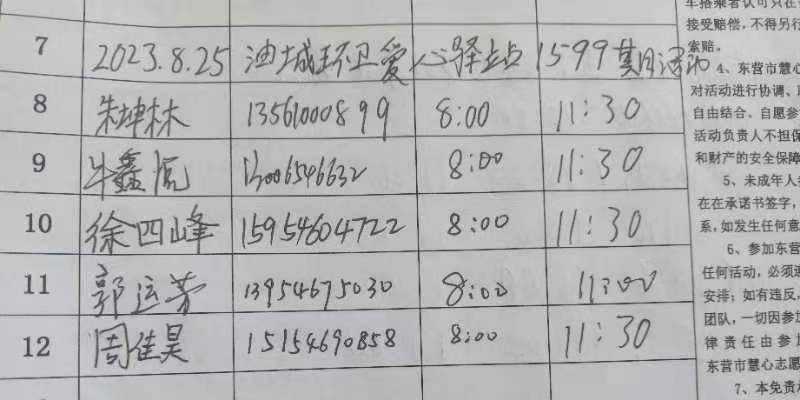 7 2023.8.25 油城环卫爱心驿站 1599期活动
8 朱坤林 13561000899 8:00 11:30
9 牛鑫 13006546632 8:00 11:30
10 徐四峰 15954604722 8:00 11:30
11 郭运芳 13954675030 8:00 11:00
12 周佳昊 15154690858 8:00 11:30
接受赔偿，不得另行
索赔。
4、东营市慧心
对活动进行协调、
自由结合、自愿参
活动负责人不担保
和财产的安全保障
5、未成年人
在在承诺书签字，
系，如发生任何意
6、参加东营
任何活动，必须
安排；如有违反，
团队，一切因参加
律责任由参加
东营市慧心志愿
7、本免责